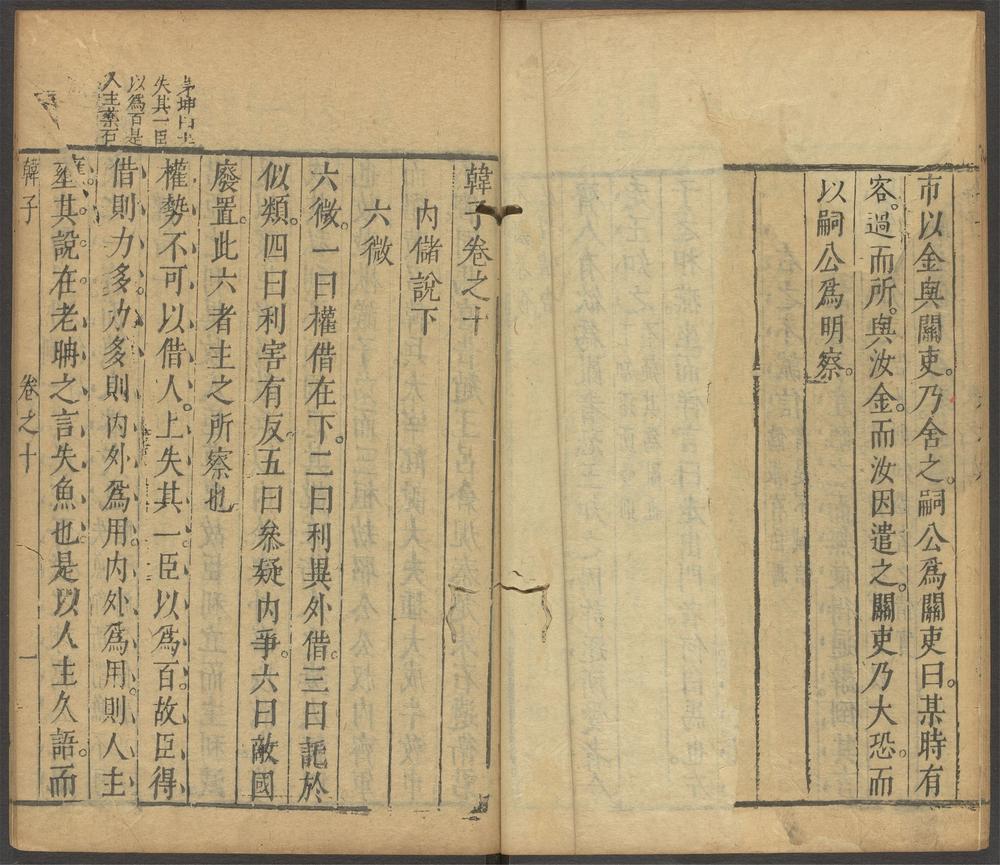 市以金與關吏。乃舍之。嗣公爲關吏曰。某時有
客。過而所。與汝金。而汝因遣之。關吏乃大恐。而
以嗣公爲明察。
韓子卷之十
內儲說下
六微
六微。一曰權借在下。二曰利異外借。三曰託於
似類。四曰利害有反。五曰參疑內爭。六曰敵國
廢置。此六者主之所察也
權勢不可以借人。上失其一。臣以爲百。故臣得
借則力多。力多則內外爲用。內外爲用。則人主
壅。其說。在老聃之言失魚也。是以人主久語。而
茅坤曰上
失其一臣
以爲百是
人主藥石
韓子 卷之十 一